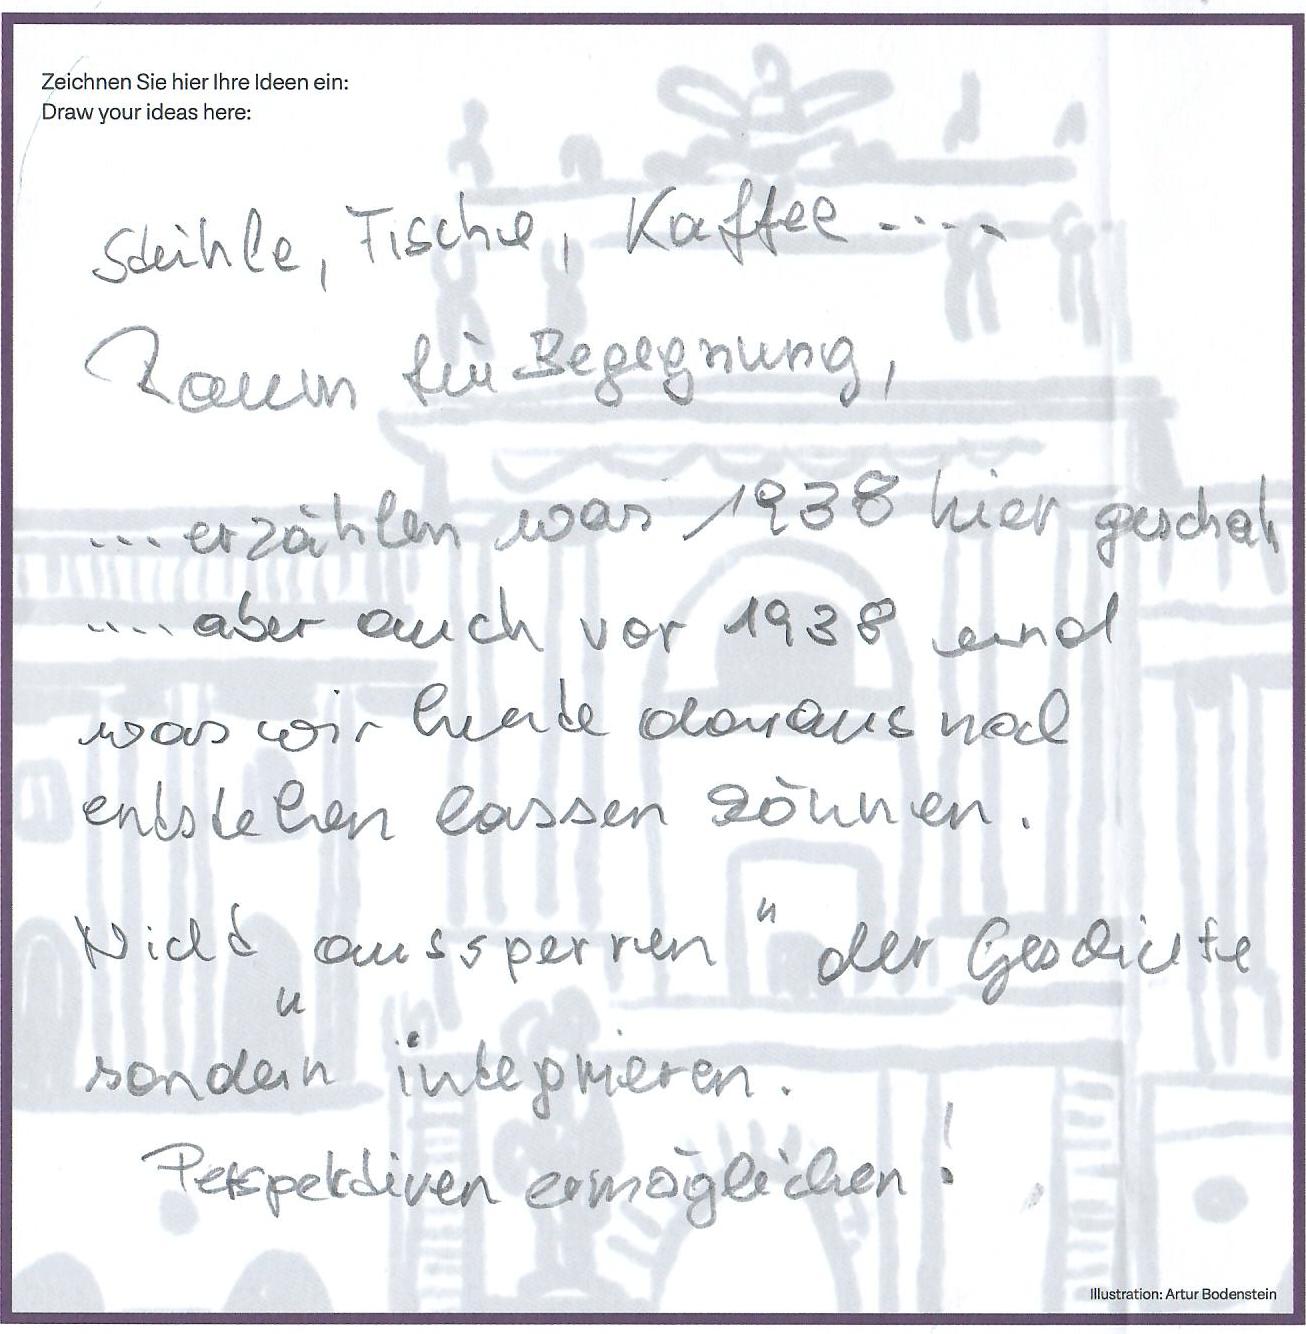 Zeichnen Sie hier Ihre Ideen ein:
Draw your ideas here:
Stühle, Tische, Kaffee ....
Raum für Begegnung,
... erzählen was 1938 hier geschah
.... aber auch vor 1938 und
was wir heute daraus noch
entstehen lassen können.
Nicht "aussperren" der Geschichte
sondern integrieren.
Perspektiven ermöglichen!
Illustration: Artur Bodenstein